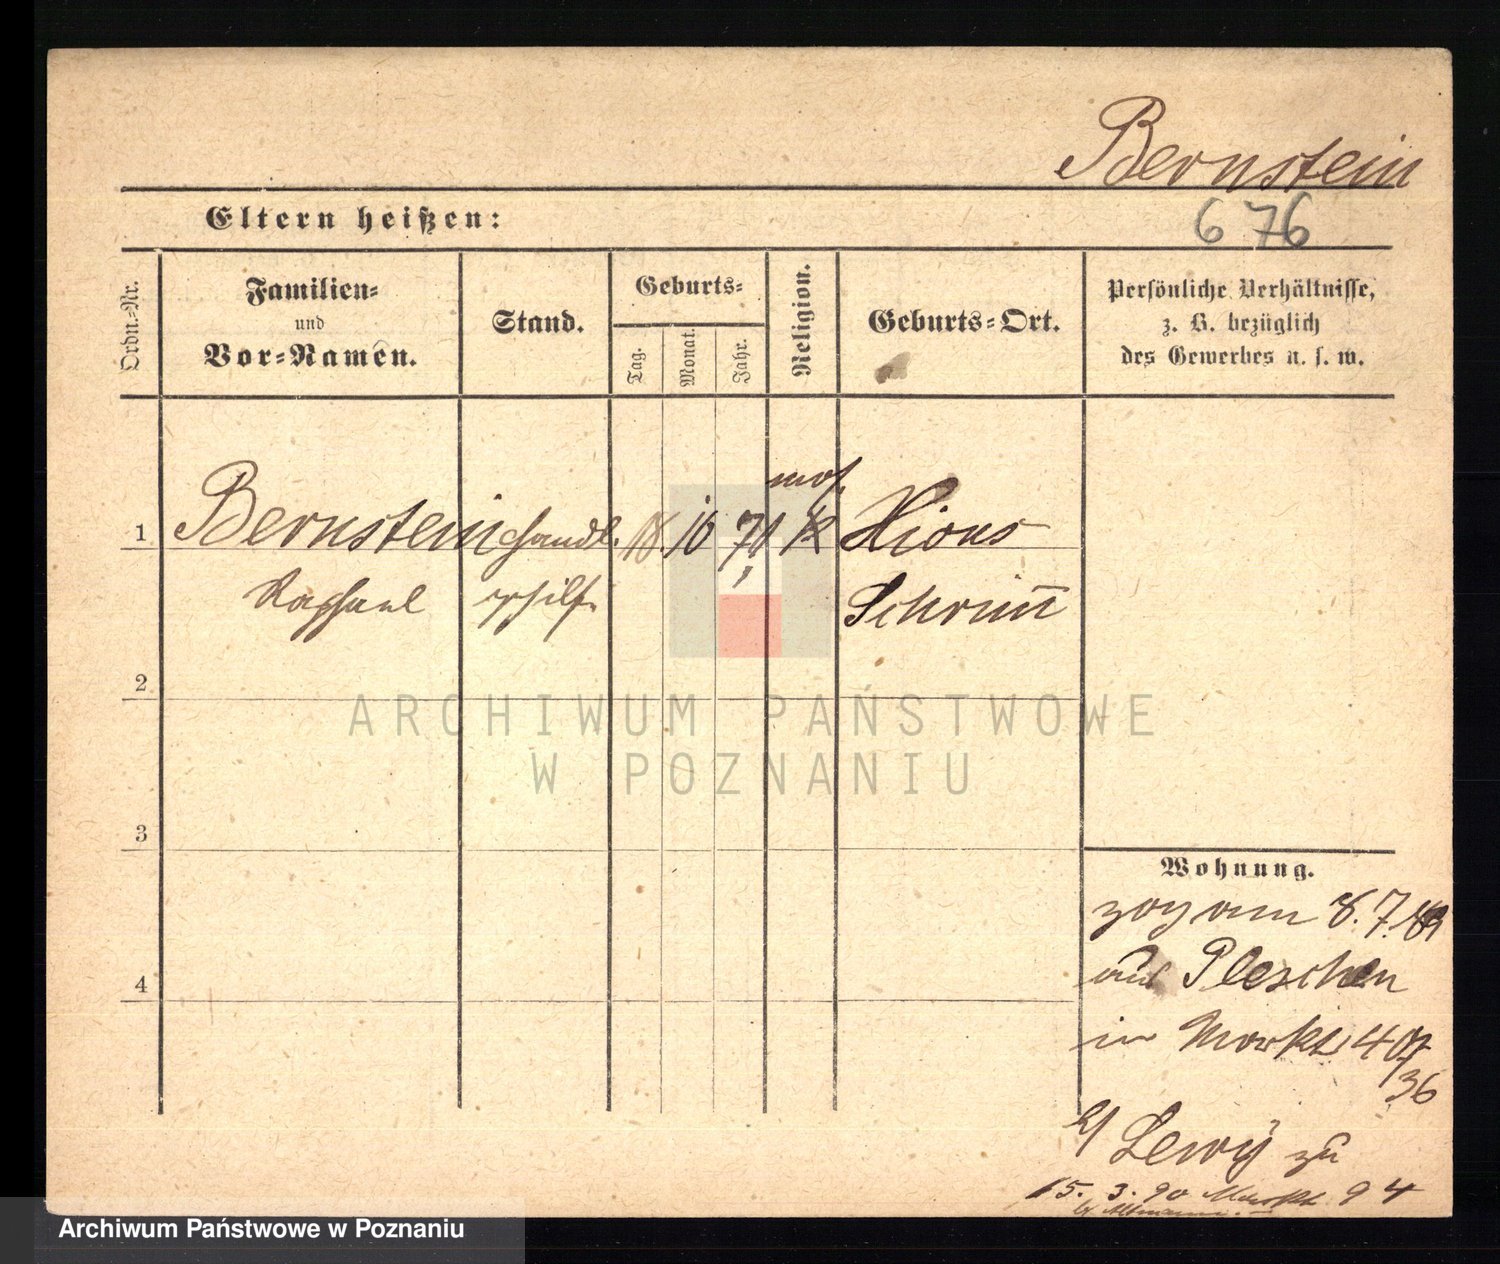 Bernstein
Eltern heißen:
6 76
Ordn.-Nr.
Familien-
und
Vor-Namen.
Stand.
Geburts-
Tag.
Monat.
Jahr.
Religion.
Geburts-Ort.
Persönliche Verhältnisse,
z. B. bezüglich
des Gewerbes u. s. w.
mos.
1 Bernstein Handl. 18. 10 71 Xions
Raphael gehilf. Schrimm
2
3
4
ARCHIWUM PAŃSTWOWE
W POZNANIU
Wohnung.
zog am 8. 7. 89
aus Pleschen
in Markt 40
36
b/ Lewy zu
15. 3. 90 Markt 94
b/
Archiwum Państwowe w Poznaniu